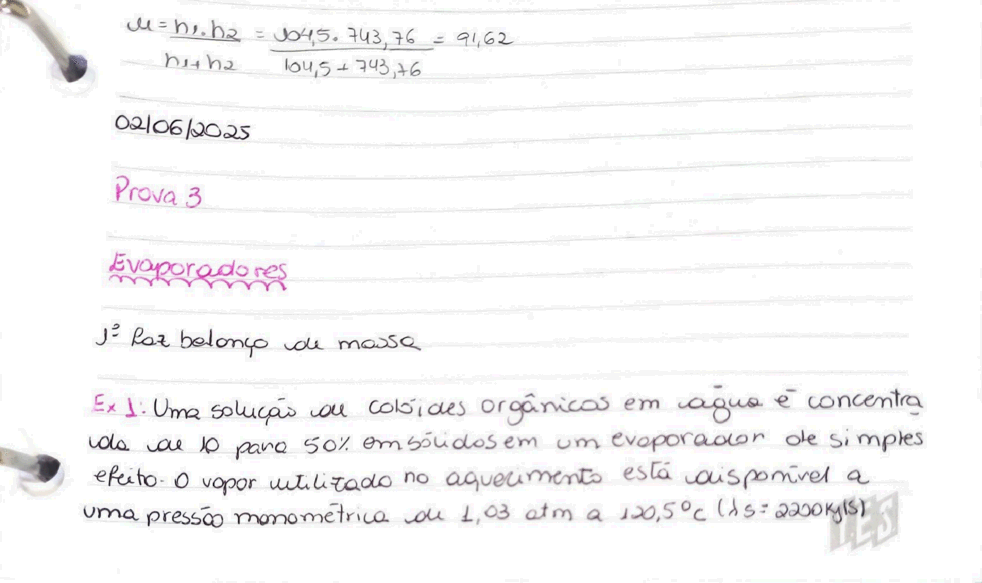 u = h1.h2 = 104,5 . 743,76 = 91,62
h1+h2 104,5 + 743,76
02/06/2025
Prova 3
Evaporadores
1º Faz balanço de massa
Ex 1: Uma solução de colóides orgânicos em água é concentra
da de 10 para 50% em sólidos em um evaporador de simples
efeito. O vapor utilizado no aquecimento está disponível a
uma pressão manométrica de 1,03 atm a 120,5ºC (λs = 2200KJ/S)